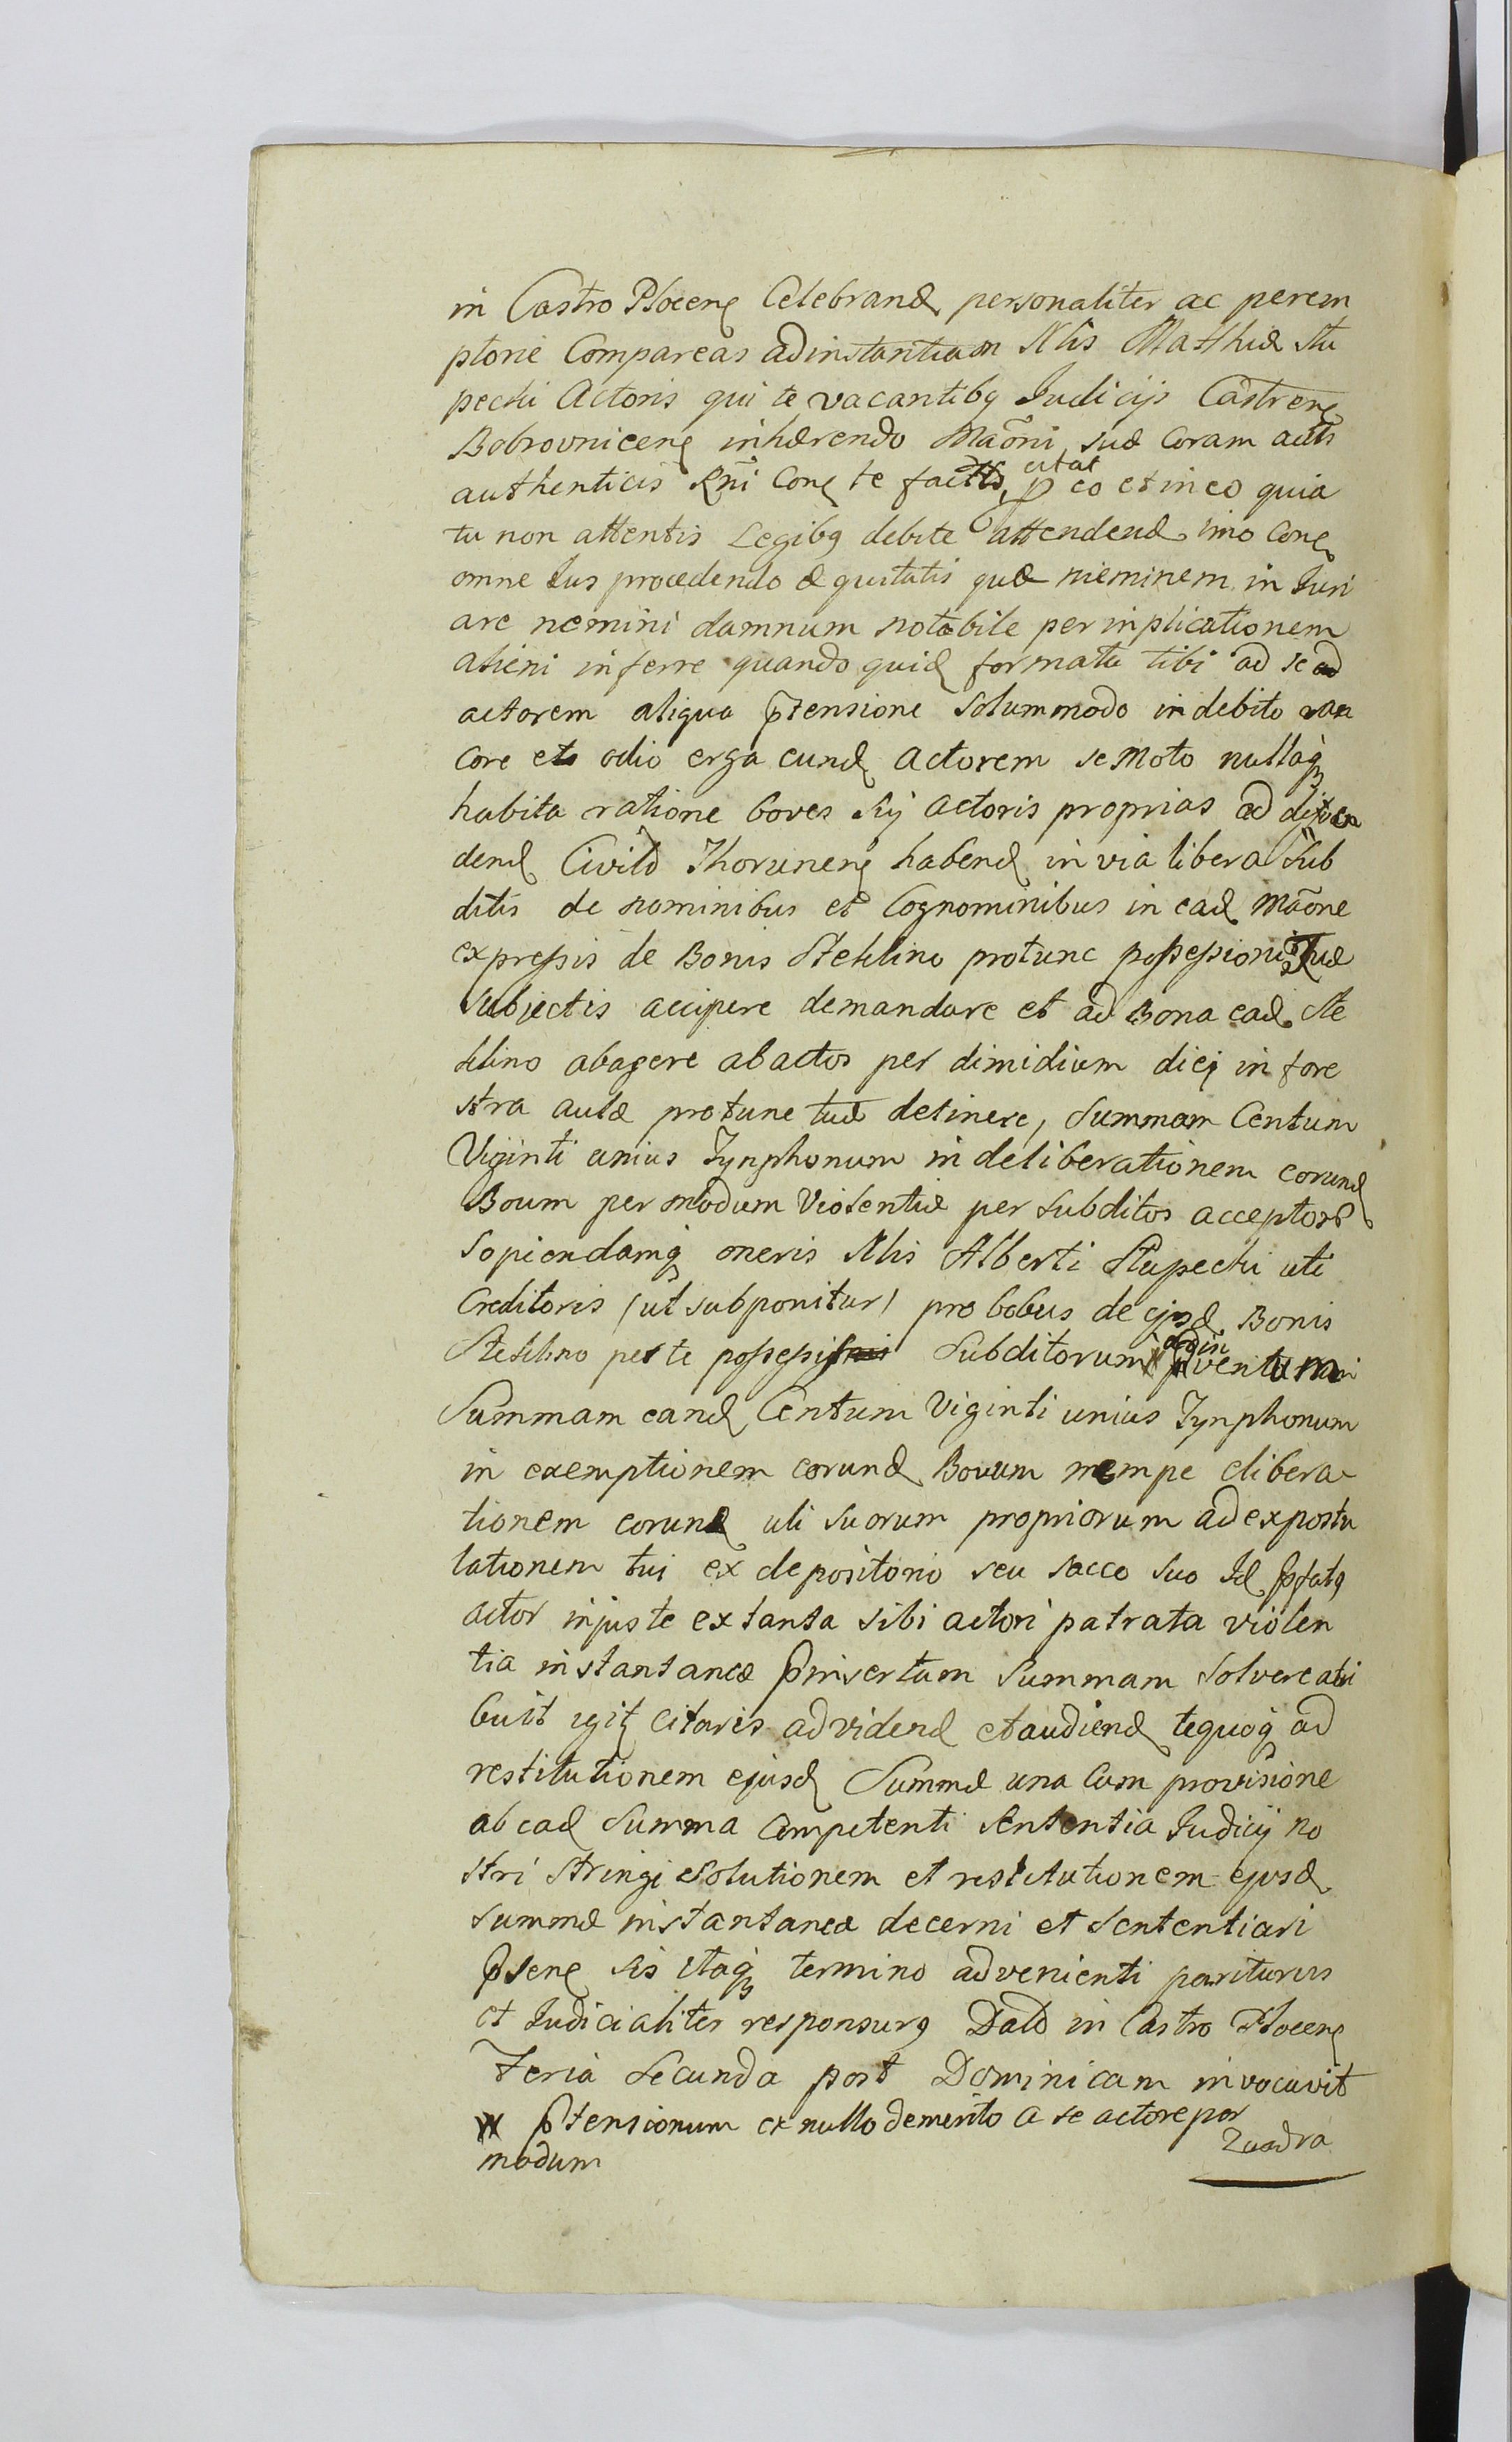 in Castro Plocens Celebrand personaliter ac perem
ptorie Compareas ad instantiam Nlis Mathiæ Stu
pecki Actoris qui te vacantibq Judicijs Castrens
Bobrovnicens inhærendo Maõni suæ Coram actis
authenticis Rñi Cons te factis, citat
p eo et in eo quia
tu non attentis Legibq debite attendend imo Cons
omne Jus procedendo æquitatis quæ nieminem in Juri
are nemini damnum notabile per inplicationem
alieni inferre quando quid formata tibi ad se ad
actorem aliqua ptensione solummodo indebito ran
core et odio erga eund Actorem semoto nullaq
habita ratione boves sij Actoris proprias ad
dend Civitd Thorunens habend in via libera Sub
ditis de nominibus et Cognominibus in ead Maõne
expressis de Bonis Steklino protunc possessioni Tuæ
subjectis accipere demandare et ad Bona ead Ste
klino abagere abactos per dimidium diej in fore
stra aulæ protunc tuæ detinere, Summam Centum
Viginti unius Tynphonum in deliberationem eorund
Boum per modum Violentiæ per subditos acceptord
sopiendamq oneris Nlis Alberti Stupecki uti
Creditoris (ut subponitur) pro bobus de ejusd Bonis
Steklino per te possessi Subditorum
Summam eand Centum Viginti unius Tynphonum
in exemptionem eorund Bovum nempe elibera
tionem eorund uti suorum propriorum ad expostu
lationem tui ex depositorio seu sacco suo Id pfatq
actor injuste ex tanta sibi actori patrata violen
tia instantanea pinsertam Summam solvere atri
buit igit citaris ad vidend et audiend tequoq ad
restitutionem ejusd Summæ una Cum provisione
ab ead Summa Competenti Sententia Judicij no
stri stringi solutionem et restitutionem ejusd
summæ instantanea decerni et sententiari
psens sis itaq termino advenienti pariturus
et Judicialiter responsurq Datd in Castro Plocens
Feria Secunda post Dominicam invocavit
ptensionum ex nullo demerito a se actore per
modum
Quadra